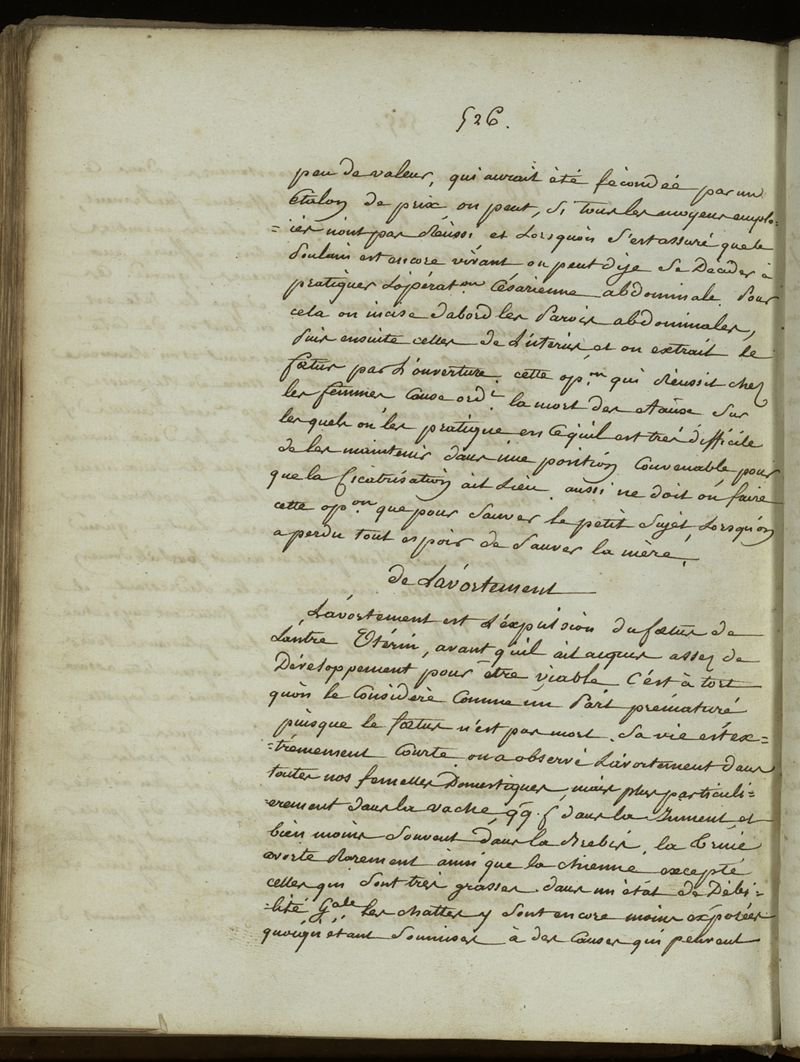 526.
peu de valeur, qui aurait été fécondée par un
étalon de prix on peut, si tous les moyens emplo-
=iés n'ont pas réussi et lorsqu'on s'est assuré que le
poulain est encore vivant on peut dije se Décider à
pratiquer l'opérat.on Césarienne abdominale. Pour
cela on incise d'abord les Parois abdominales,
puis ensuite celles de l'utérus, et on extrait le
fœtus par l'ouverture. cette op.on qui réussit chez
les femmes cause ord.t la mort des
lesquels on les pratique en ce qu'il est très difficile
de les maintenir dans une position Convenable pour
que la Cicatrisation ait lieu. aussi ne doit on faire
cette op.on que pour sauver le petit sujet, lorsqu'on
a perdu tout espoir de sauver la mère.
de L'avortement
L'avortement est l'éxpulsion du fœtus de
L'antre Utérin, avant qu'il ait acquis assez de
Développement pour être viable C'est à tort
qu'on le Considère Comme un Part prématuré
puisque le fœtus n'est pas mort. Sa vie est ex=
=trêmement Courte. on a observé L'avortement dans
toutes nos femelles Domestiques, mais plus particuli=
=èrement dans la vache qq. f dans la Jument et
bien moins souvent dans la Brebis. la Truie
avorte rarement ainsi que la chienne excepté
celles qui sont très grasses dans un état de Débi=
=lité Gale les chattes y sont encore moins exposées
quoiqu'étant soumises à des causes qui peuvent